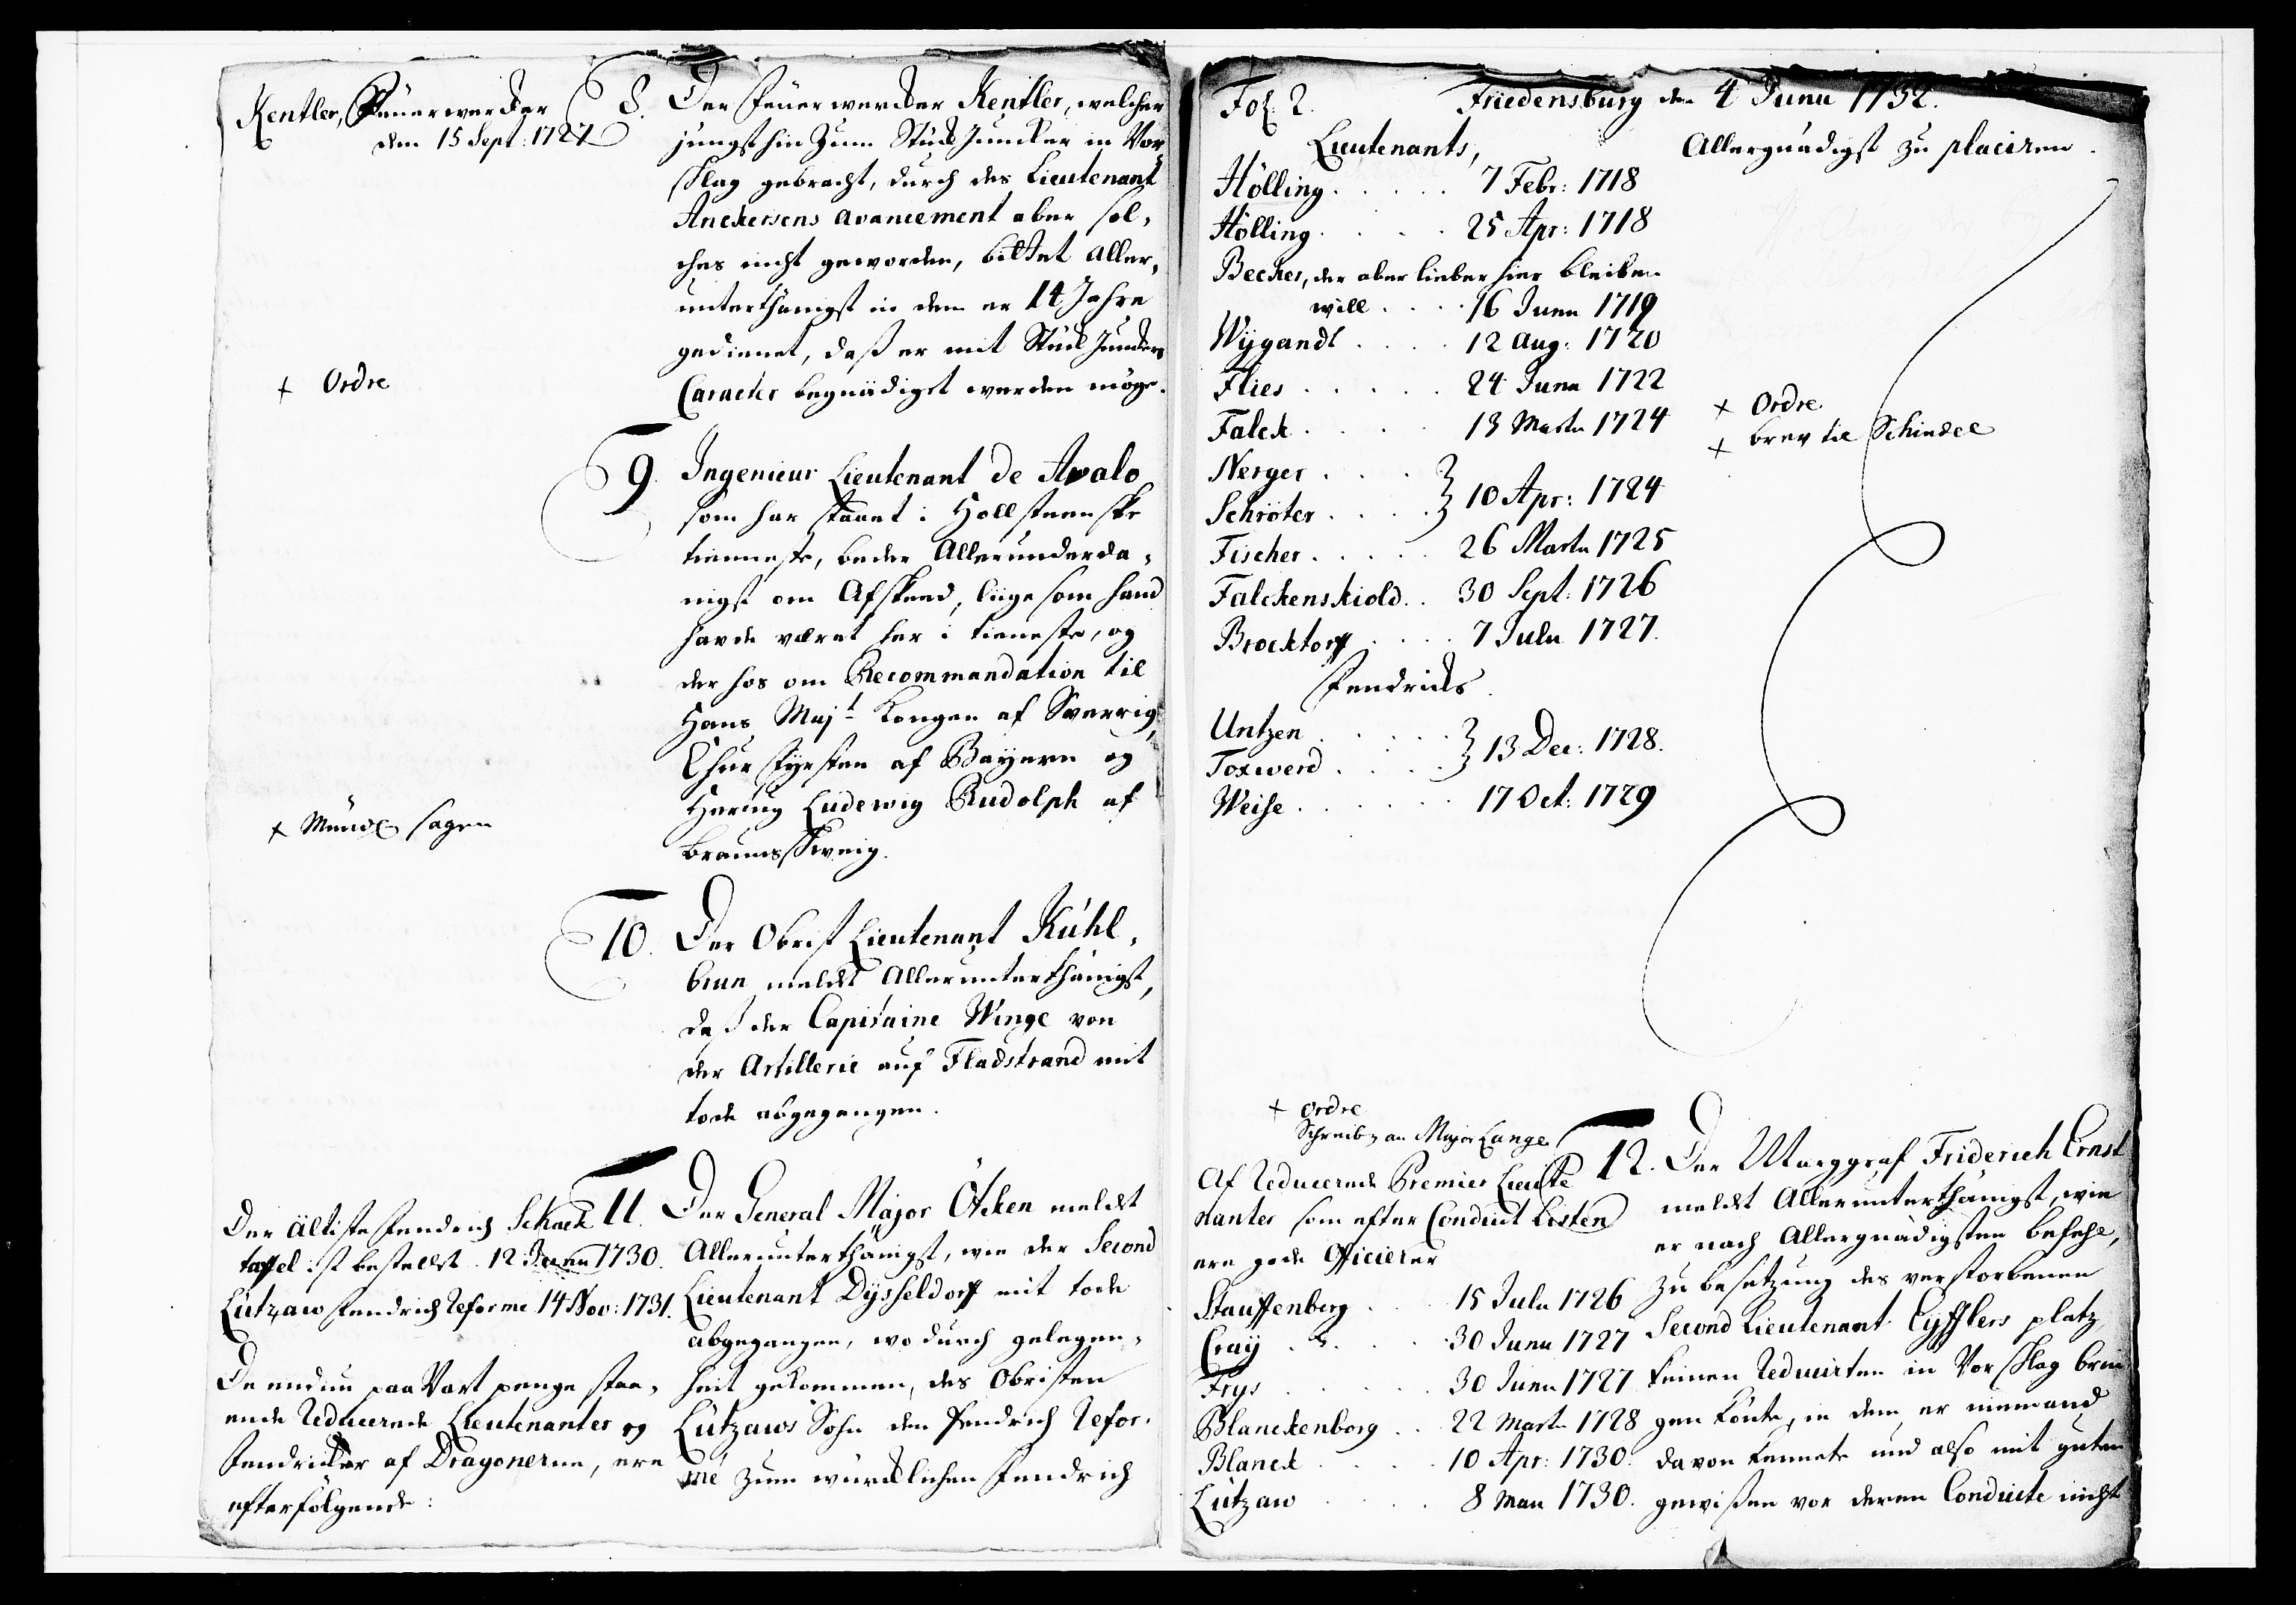 Kentler, Feuerwercker
den 15 Sept: 1727
+ Ordre
+ Mündl sagen
Der ältiste Fendrich Schack
taffel ist bestellt 12 Junii 1730.
Lützaw Fendrich Reforme 14 Nov: 1731.
De endnu paa Vart penge staa-
ende Reducerede Lieutenanter og
Fendricker af Dragonerne, ere
efterfölgende:
8. Der Feuerwercker Kentler, welcher
jungsthin zum Stück Juncker in Vor
schlag gebracht, durch des Lieutenant
Anckersens avancement aber sol-
ches nicht geworden, bittet aller-
unterthänigst in dem er 14 Jahre
gedienet, daß er mit Stück Junckers
Caracter begnädiget werden möge.
9. Ingenieur Lieutenant de Avalo
som har staaet i Hollsteenske
tienneste, beder Allerunderda-
nigst om Afskeed, liige som hand
havde været her i tieneste, og
der hos om Recommandation til
Hans Majt Kongen af Sverrig,
Chur Fyrsten af Bayern og
Hertug Ludewig Rudolph af
Braunsschweig.
10. Der Obrist Lieutenant Kühl-
brun meldet Allerunterthänigst,
daß der Capitaine Winge von
der Artillerie auf Fladstrand mit
tode abgegangen.
11. Der General Major Ötken meldet
Allerunterthänigst, wie der Second
Lieutenant Dysseldorff mit tode
abgegangen, wodurch gelegen-
heit gekommen, des Obristen
Lützaws Sohn den Fendrich Refor-
mé zum würcklichen Fendrich
Fol. 2. Friedensburg den 4 Junii 1732.
Lieutenants,
Hölling . . . . . 7 Febr: 1718
Hölling . . . . 25 Apr: 1718
Becker, der aber lieber hier bleiben
will . . . 16 Junii 1719
Wÿgandt . . . . 12 Aug: 1720
Flies . . . . . 24 Junii 1722
Falck . . . . 13 Martii 1724
Nerger . . . .
Schröter . . . . } 10 Apr: 1724
Fischer . . . . . 26 Martii 1725
Falckenskiold . . 30 Sept: 1726
Brocktorff . . . . 7 Julii 1727.
Fendricks.
Untzen . . . . .
Toxwerd . . . . } 13 Dec: 1728.
Weise . . . . . . 17 Oct: 1729
+ Ordre
Schreiben an Major Lange
Af Reducerede Premier Lieute
nanter som efter Conduit Listen
ere gode Officierer
Stauffenberg . . . 15 Julii 1726
Cray . . . . 30 Junii 1727
Frys . . . . . 30 Junii 1727
Blanckenborg . . 22 Martii 1728
Blanck . . . . 10 Apr: 1730.
Lützaw . . . . 8 Maii 1730.
Allergnädigst zu placiren.
+ Ordre
+ brev til Schindel
12. Der Marggraf Friderich Ernst
meldet Allerunterthänigst, wie
er nach Allergnädigsten befehl,
zu besetzung des verstorbenen
Second Lieutenant Cyfflers platz
keinen Reducirten in Vorschlag brin
gen könte, in dem er niemand
davon kennete und also mit guten
gewißen vor deren Conduite nicht